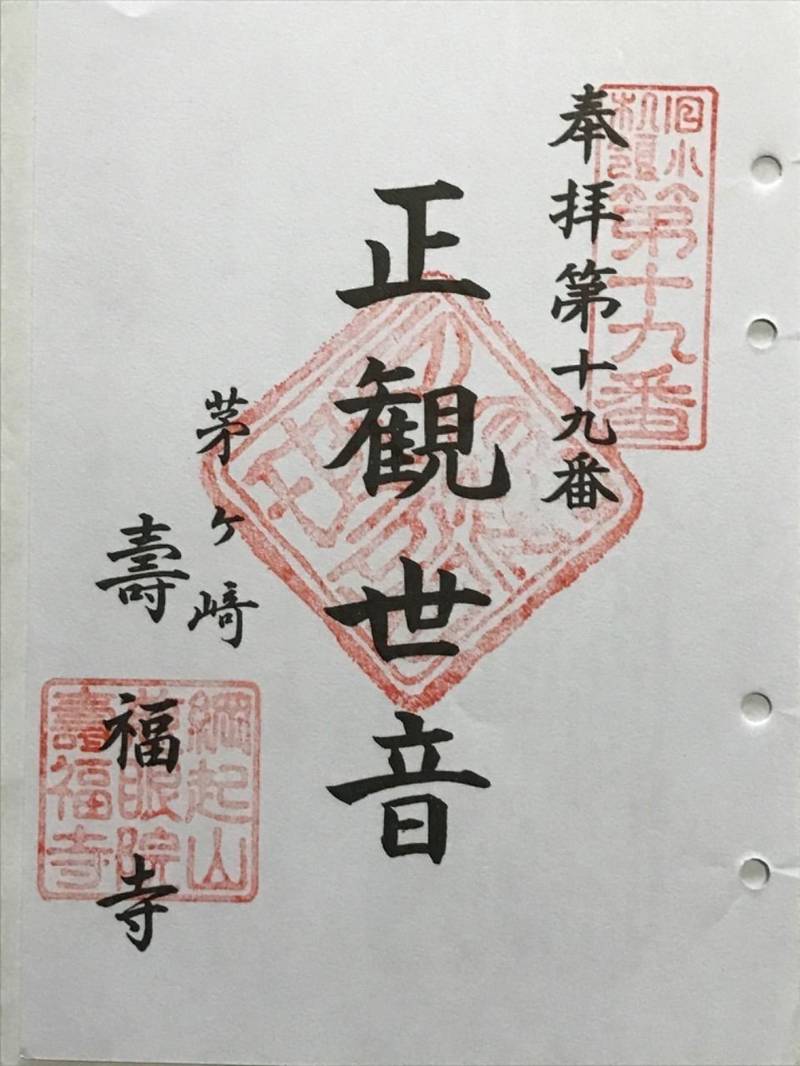 奉拝第十九番
旧小
机領
第十九番
正観世音
茅ヶ﨑
壽福寺
綱起山
眼院
壽福寺